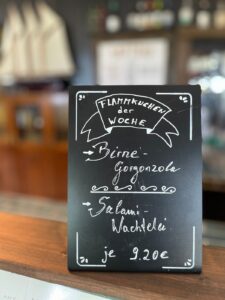 FLAMMKUCHEN
der
WOCHE
Birne-
Gorgonzola
Salami-
Wachtelei
je 9.20€